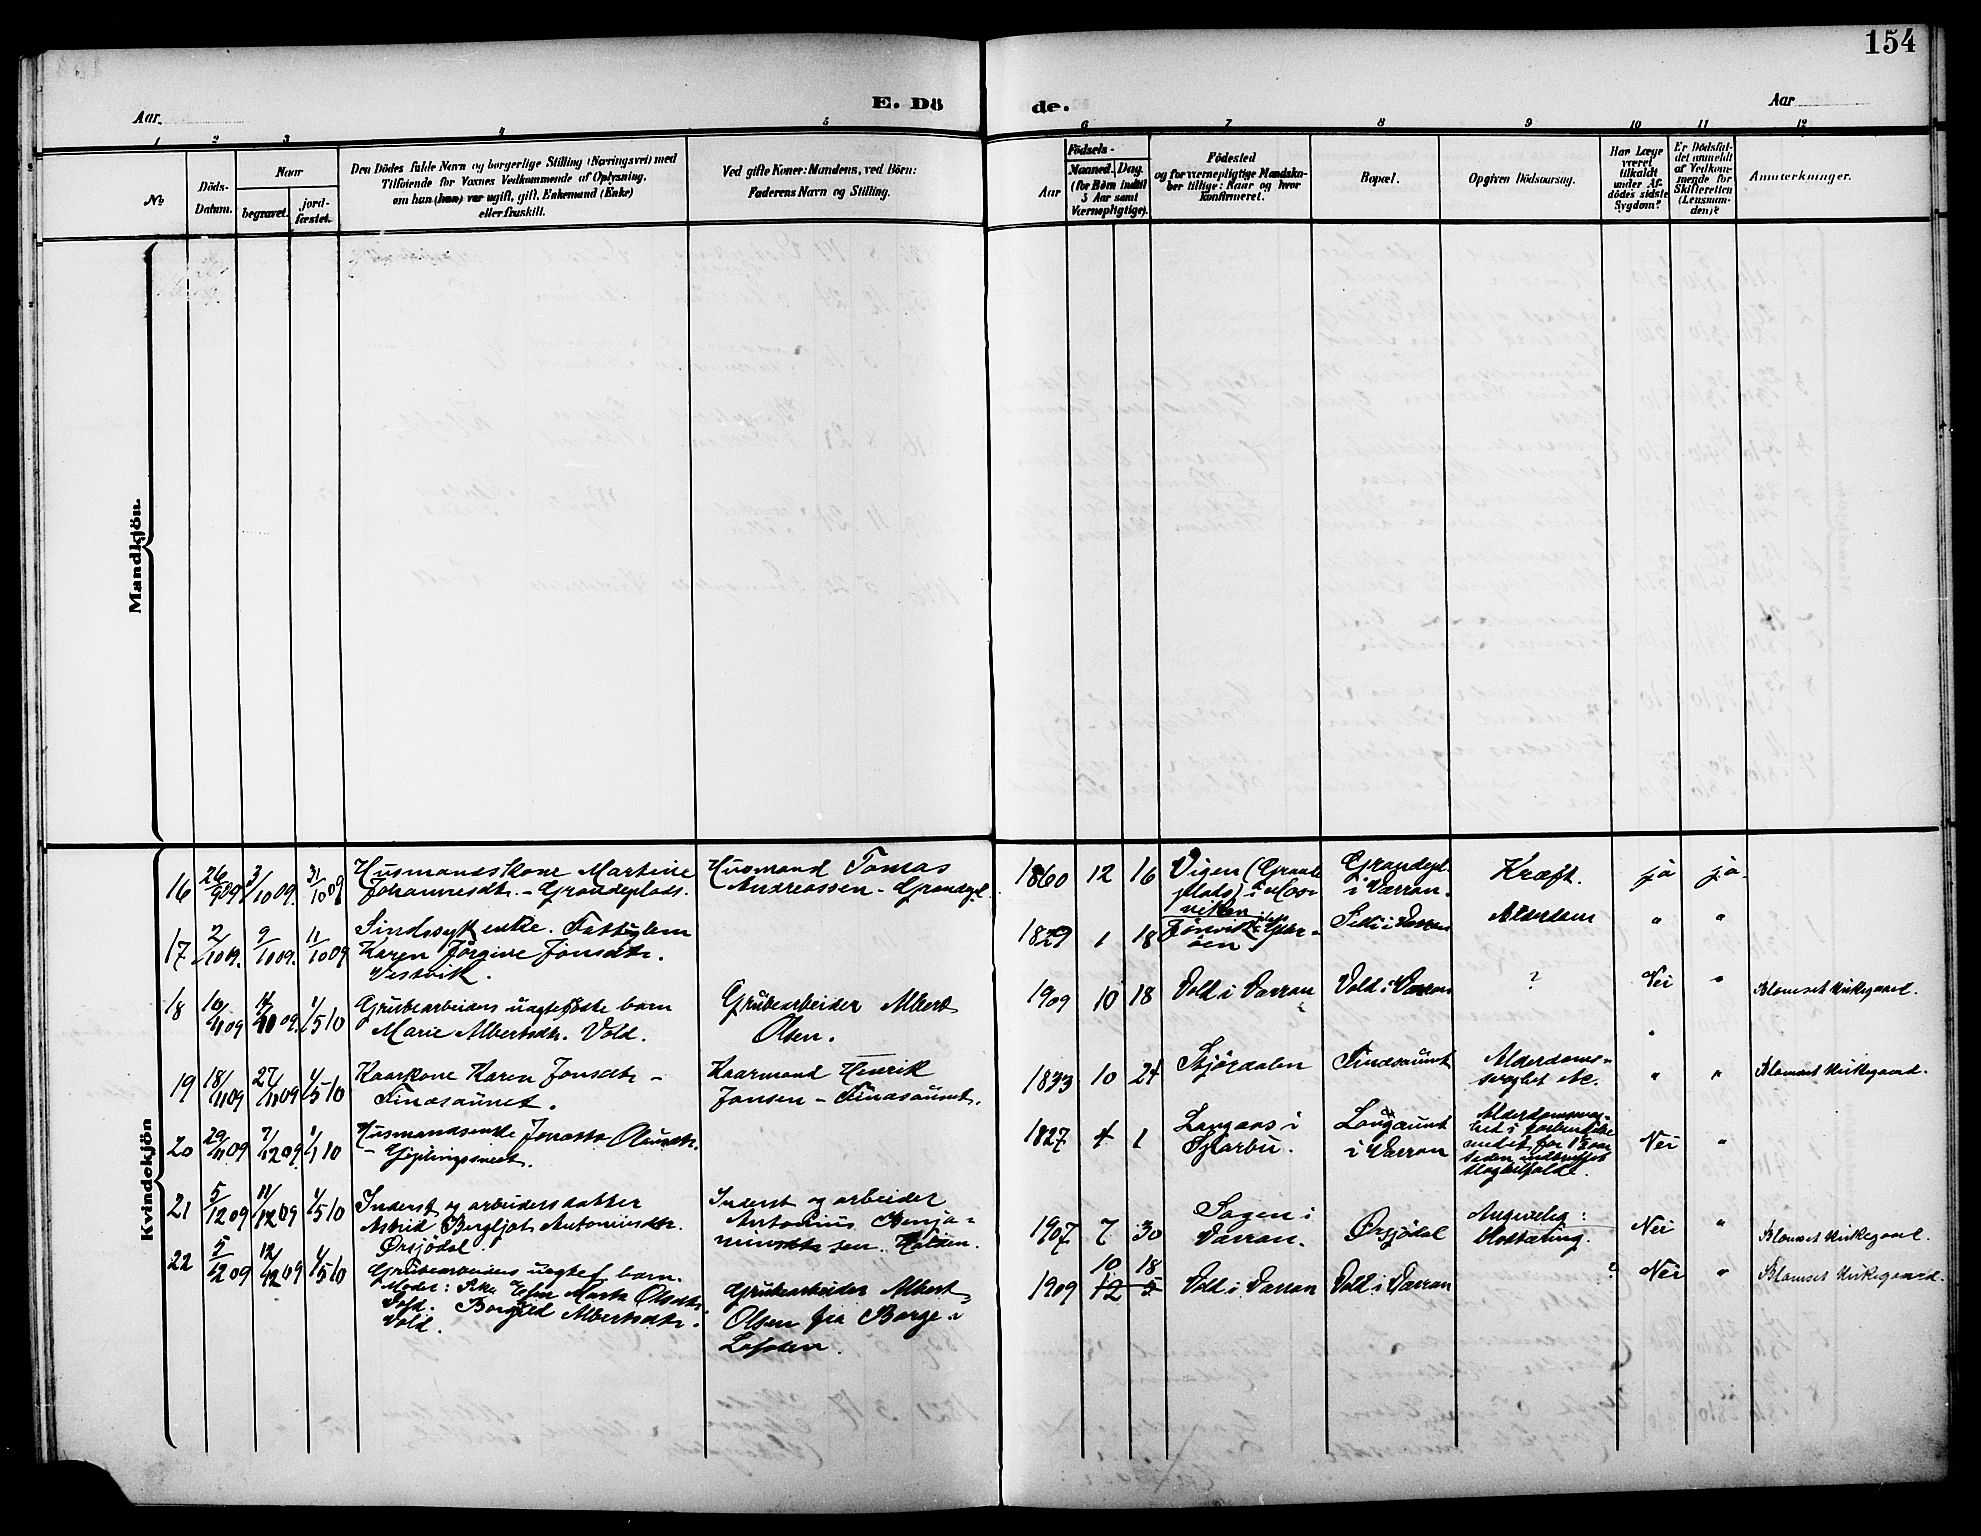 154
E. Dö
de.
Aar
Aar
1 2 3 4 5 6 7 8 9 10 11 12
No
Döds-
Datum.
Naar
begravet.
jord-
fæstet.
Den Dödes fulde Navn og borgerlige Stilling (Næringsvei) med
Tilföiende for Voxnes Vedkommende af Oplysning,
om han (hun) var ugift, gift, Enkemand (Enke)
eller fraskilt.
Ved gifte Koner: Mandens, ved Börn:
Faderens Navn og Stilling.
Födsels-
Aar
Maaned. Dag.
(for Börn indtil
5 Aar samt
Værnepligtige).
Födested
og for værnepligtige Mandska-
ber tillige: Naar og hvor
konfirmeret.
Bopæl.
Opgiven Dödsaarsag.
Har Læge
været
tilkaldt
under Af-
dödes sidste
Sygdom?
Er Dödsfal-
det anmeldt
af Vedkom-
mende for
Skifteretten
(Lensman-
den)?
Anmærkninger.
Mandkjön.
Kvindekjön
16 26/9 09 3/10 09. 31/10 09 Husmandskone Martine
Johannesdtr. - Grandeplads.
Husmand Tomas
Andreassen - Grandepl.
1860 12 16 Vigen (Grande
plads) i Mos-
viken
Grandepl.
i Værran.
Kræft. ja ja.
17 2/10 09. 9/10 09. 11/10 09 Sindssyk enke. Fattiglem
Karen Jörgine Jonsdtr.
Vestvik.
1829 1 18 Alderdom " "
18 10/11 09 1/5 10 Grubearbeiders uægtefödte barn
Marie Albertsdtr. Vold.
Grubearbeider Albert
Olsen.
1909 10 18 Vold i Værran Vold i Værran ? Nei " Blomset Kirkegaard.
19 18/11 09 27/11 09 1/5 10 Kaarkone Karen Jonsdtr -
Tinasaunet.
Kaarmand Henrik
Jonsen - Tinasaunet.
1833 10 24 Stjördalen Tinasaunet Alderdoms-
svaghet etc. " " Blomset Kirkegaard.
20 29/11 09 7/12 09. 1/1 10 Husmandsenke Jonetta Olsdtr.
1827 4 1 Langaas i
Sparbu.
Langaunet
i Værran
Nei "
21 5/12 09 11/12 09 1/5 10 Inderst og arbeiders datter
Astrid Bergljot Antoniusdtr.
Örsjödal.
Inderst og arbeider
Antonius Benja-
minsen.
1907 7 30 Sagen i
Værran. Örsjödal Nei " Blomset Kirkegaard.
22 5/12 09 12/12 09 1/5 10 Grubearbeiders uægtef. barn.
Moder: Pike Marta Olsdtr.
Vold. Borghild Albertsdtr.
Vold.
Grubearbeider Albert
Olsen fra Borge i
Lofoten.
10 18
1909 12 5 Vold i Værran Vold i Værran ? Nei " Blomset Kirkegaard.